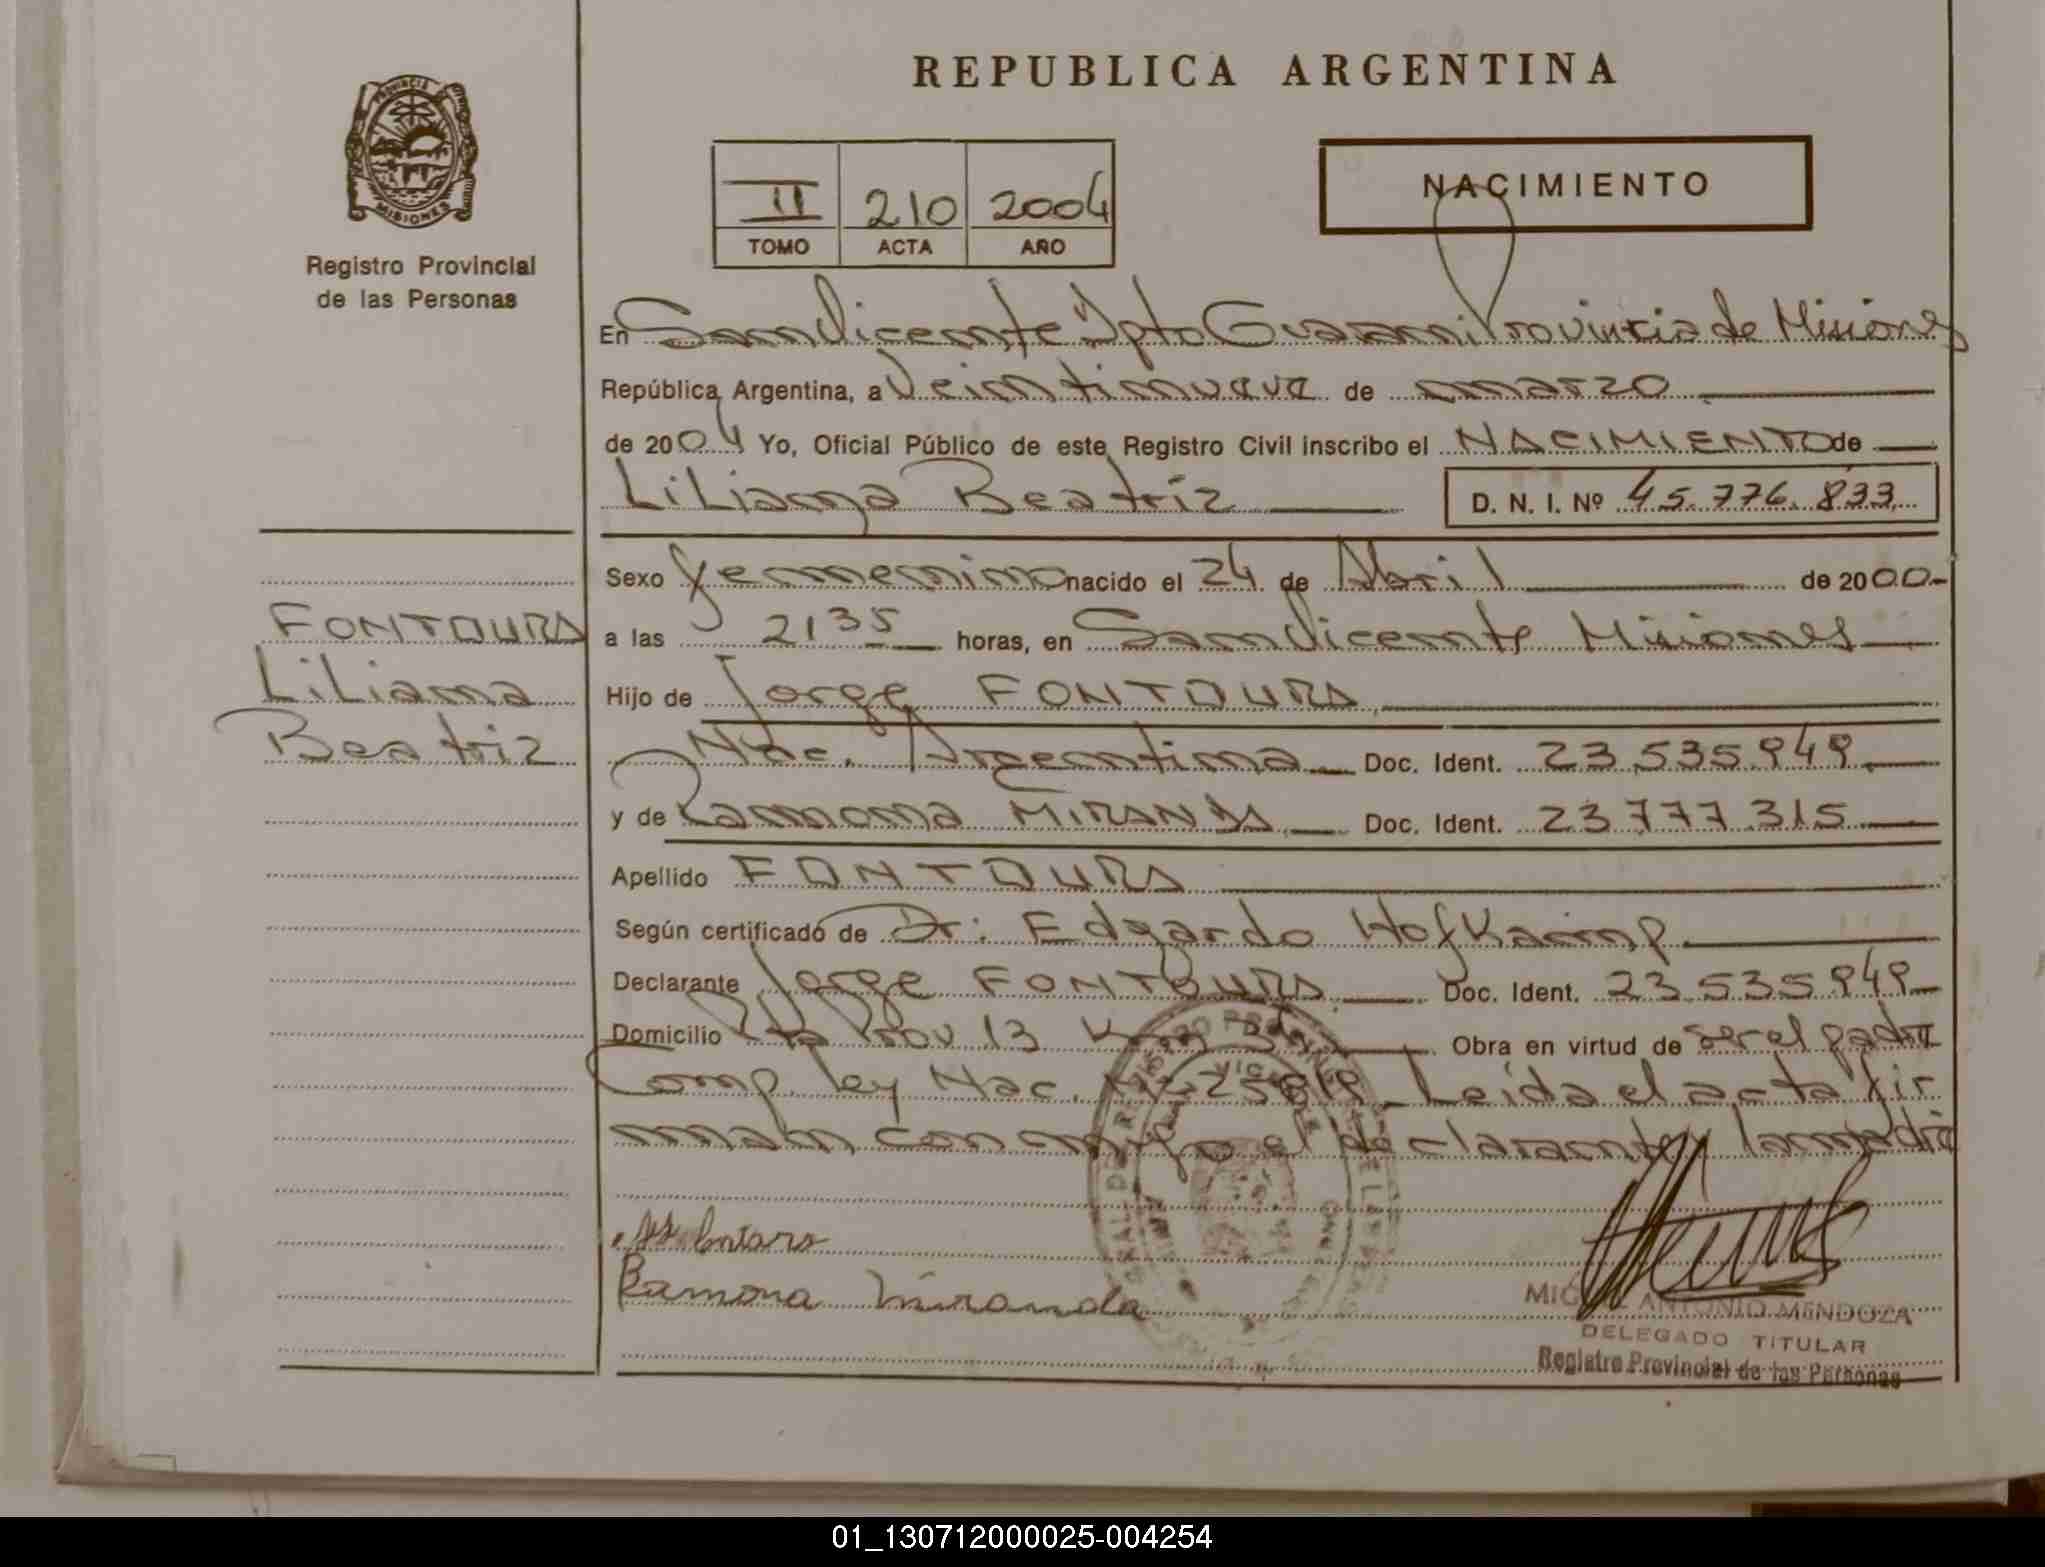 REPUBLICA ARGENTINA
PROVINCIA
MISIONES
Registro Provincial
de las Personas
II 210 2004
TOMO ACTA AÑO
NACIMIENTO
En San Vicente Dpto Guarani Provincia de Misiones
República Argentina, a Veintinueve de marzo
de 2004 Yo, Oficial Público de este Registro Civil inscribo el NACIMIENTO de
Liliana Beatriz D. N. I. Nº 45.776.833
Sexo femenino nacido el 24 de Abril de 2000
a las 21 35 horas, en San Vicente Misiones
Hijo de Jorge FONTOURA
Nac. Argentina Doc. Ident. 23 535 949
y de Ramona MIRANDA Doc. Ident. 23 777 315
Apellido FONTOURA
Según certificado de Dr: Edgardo Hofkamp
Declarante Jorge FONTOURA Doc. Ident. 23 535 949
Domicilio Rta Prov 13 Obra en virtud de ser el padre
Comp. ley Nac. Leída el acta fir
man conmigo el declarante y la madre
FONTOURA
Liliana
Beatriz
Ramona Miranda
MIGUEL ANTONIO MENDOZA
DELEGADO TITULAR
Registro Provincial de las Personas
01_130712000025-004254